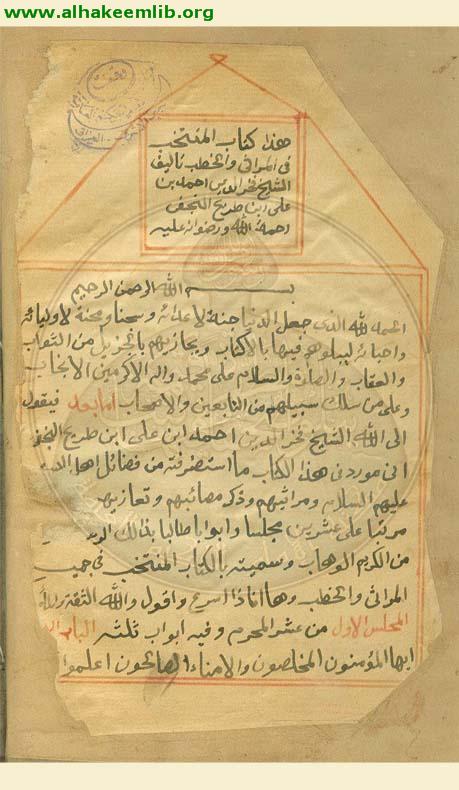 www.alhakeemlib.org
هذا كتاب المنتخب
في المراثي والخطب تاليف
الشيخ فخر الدين احمد بن
على ابن طريح النجفي
رحمة الله ورضوانه عليه
بسم الله الرحمن الرحيم
الحمد لله الذي جعل الدنيا جنة لاعدائه وسجنا ومحنة لاوليائه
واحبائه ليبلوهم فيها بالاكتاب ويجازيهم بالجزيل من الثواب
والعقاب والصلوة والسلام على محمد واله الاكرمين الانجاب
وعلى من سلك سبيلهم من التابعين والاصحاب اما بعد فيقول
الى الله الشيخ فخر الدين احمد ابن على ابن طريح النجفي
اني مورد في هذا الكتاب ما استطرفته من فضائل اهل
عليهم السلام ومراثيهم وذكر مصائبهم وتعازيهم
مرتبا على عشرين مجلسا وابوابا طالبا بذلك
من الكريم الوهاب وسميته بالكتاب المنتخب في جميع
المراثي والخطب وها انا ذا اسرع واقول والله الثقة
المجلس الاول من عشر المحرم وفيه ابواب ثلثه الباب
ايها المؤمنون المخلصون والامناء الصالحون اعلموا